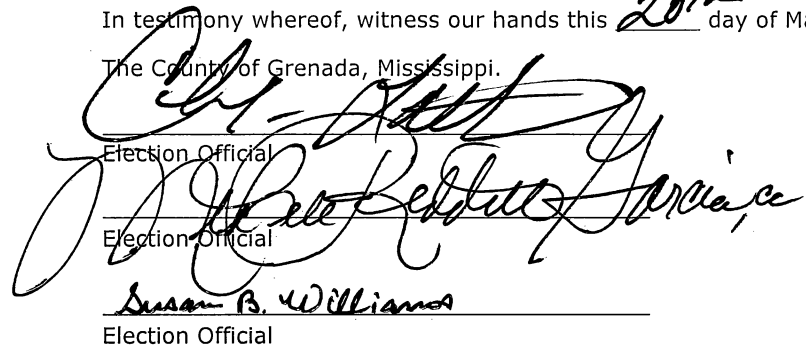 In testimony whereof, witness our hands this 20th day of Ma
The County of Grenada, Mississippi.
Election Official
Garcia, cc
Election Official
Susan B. Williams
Election Official